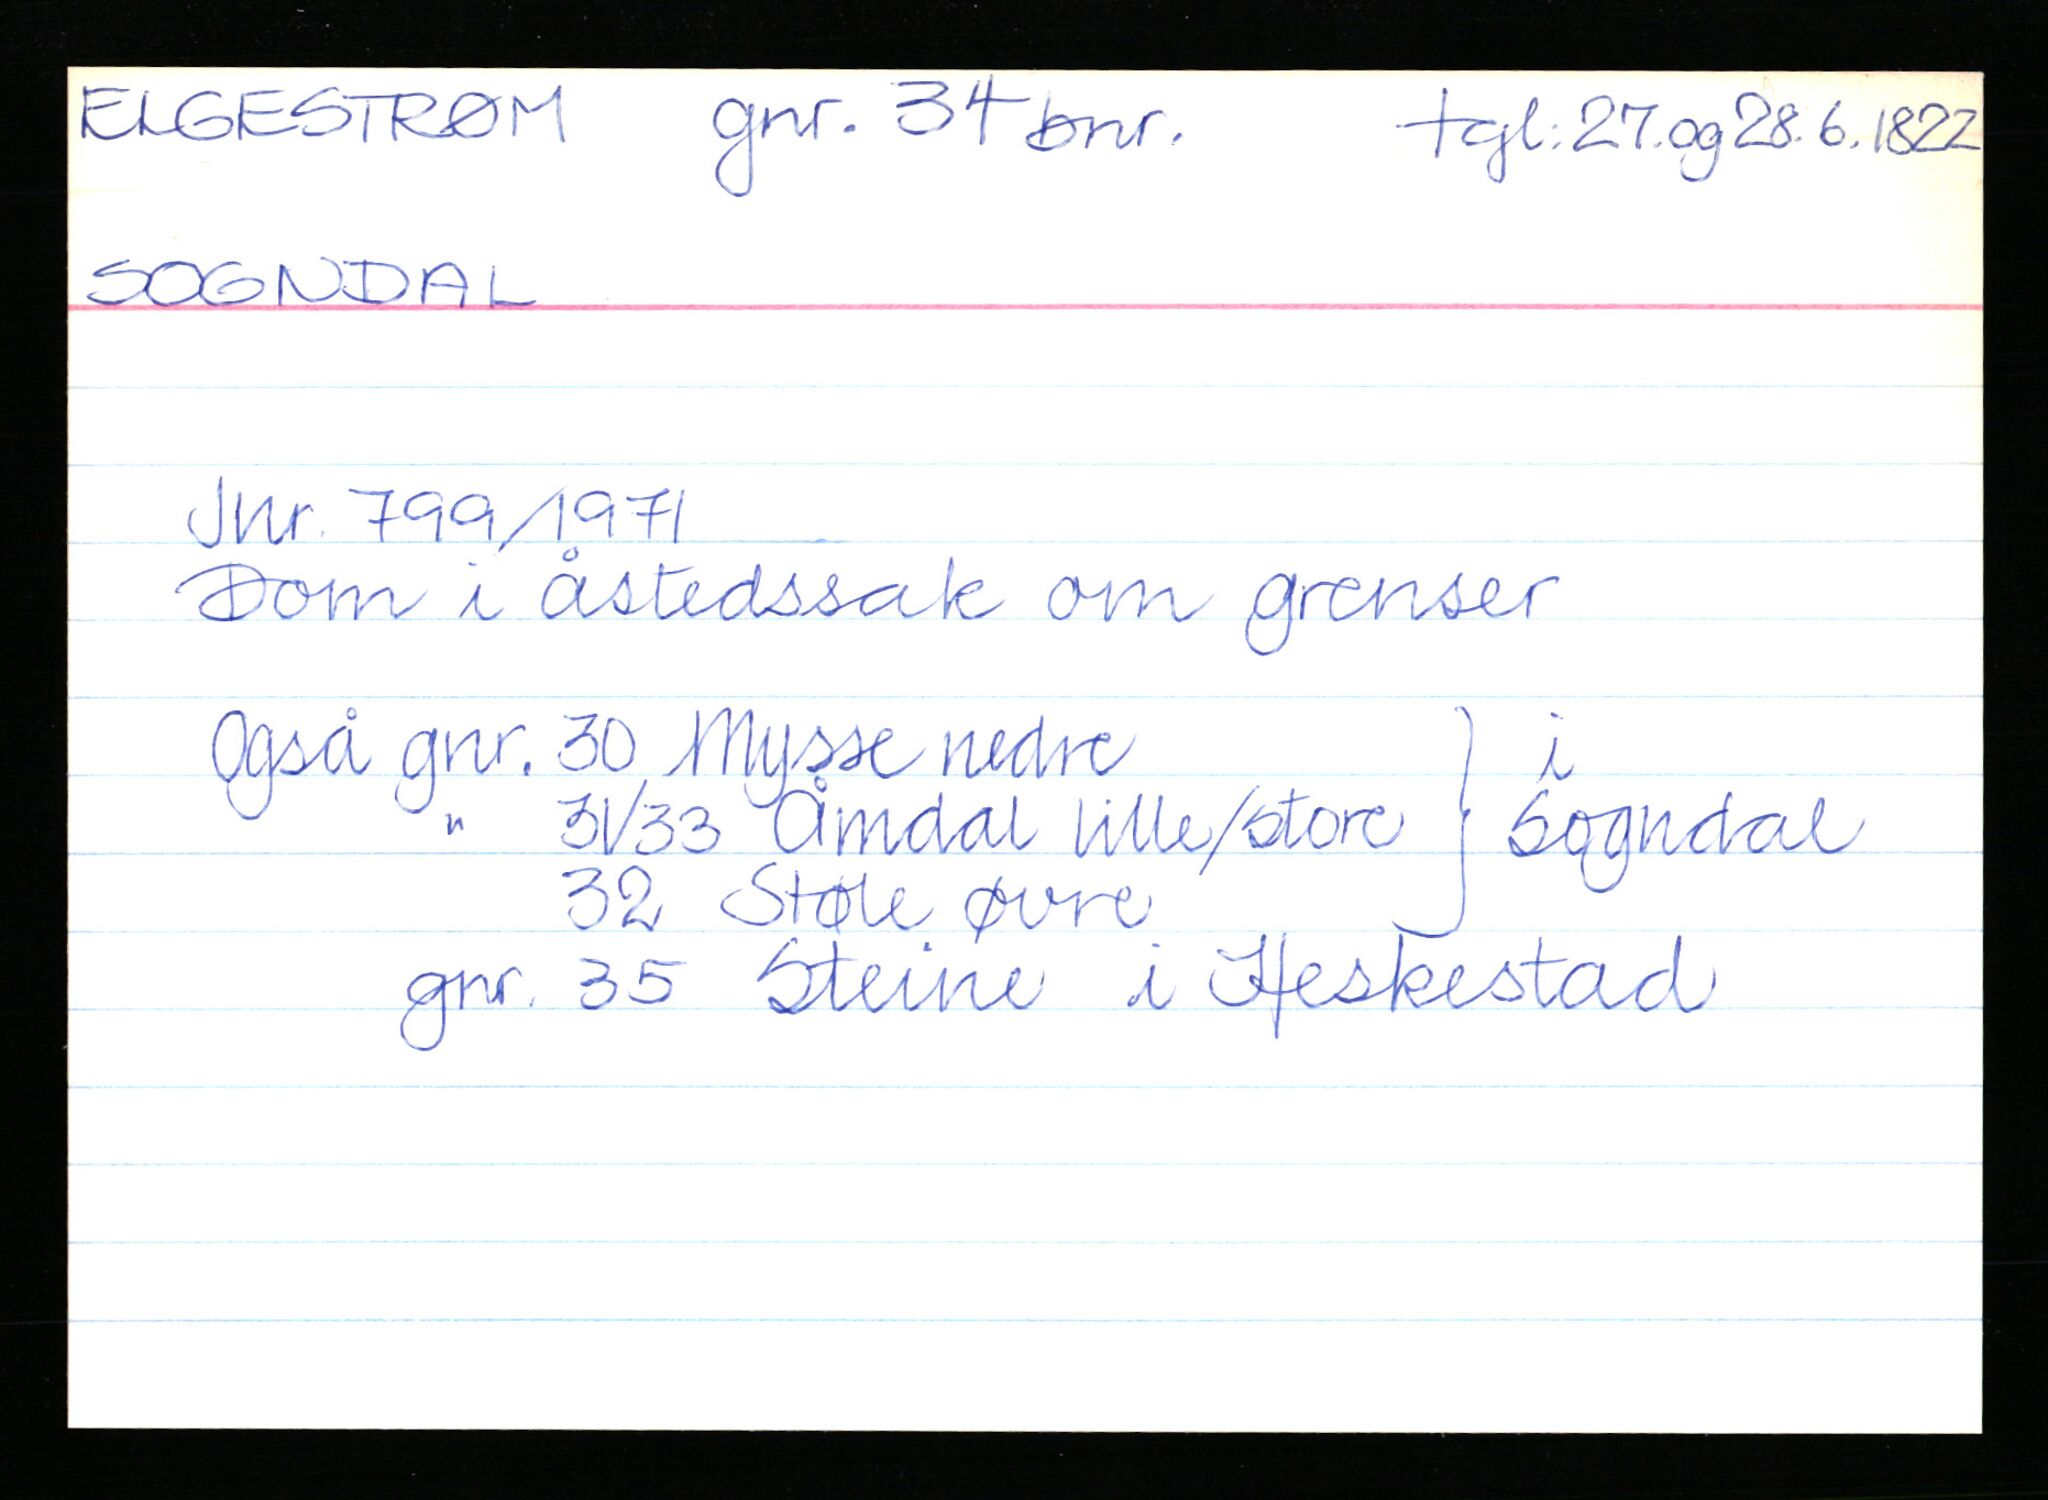 ELGESTRØM gnr. 34 bnr. tgl: 27. og 28.6.1822
SOGNDAL
Jnr. 799/1971
Dom i åstedssak om grenser
Også gnr. 30 Mysse nedre } i
" 31/33 Åmdal lille/store } Sogndal
32 Støle øvre
gnr. 35 Steine i Heskestad